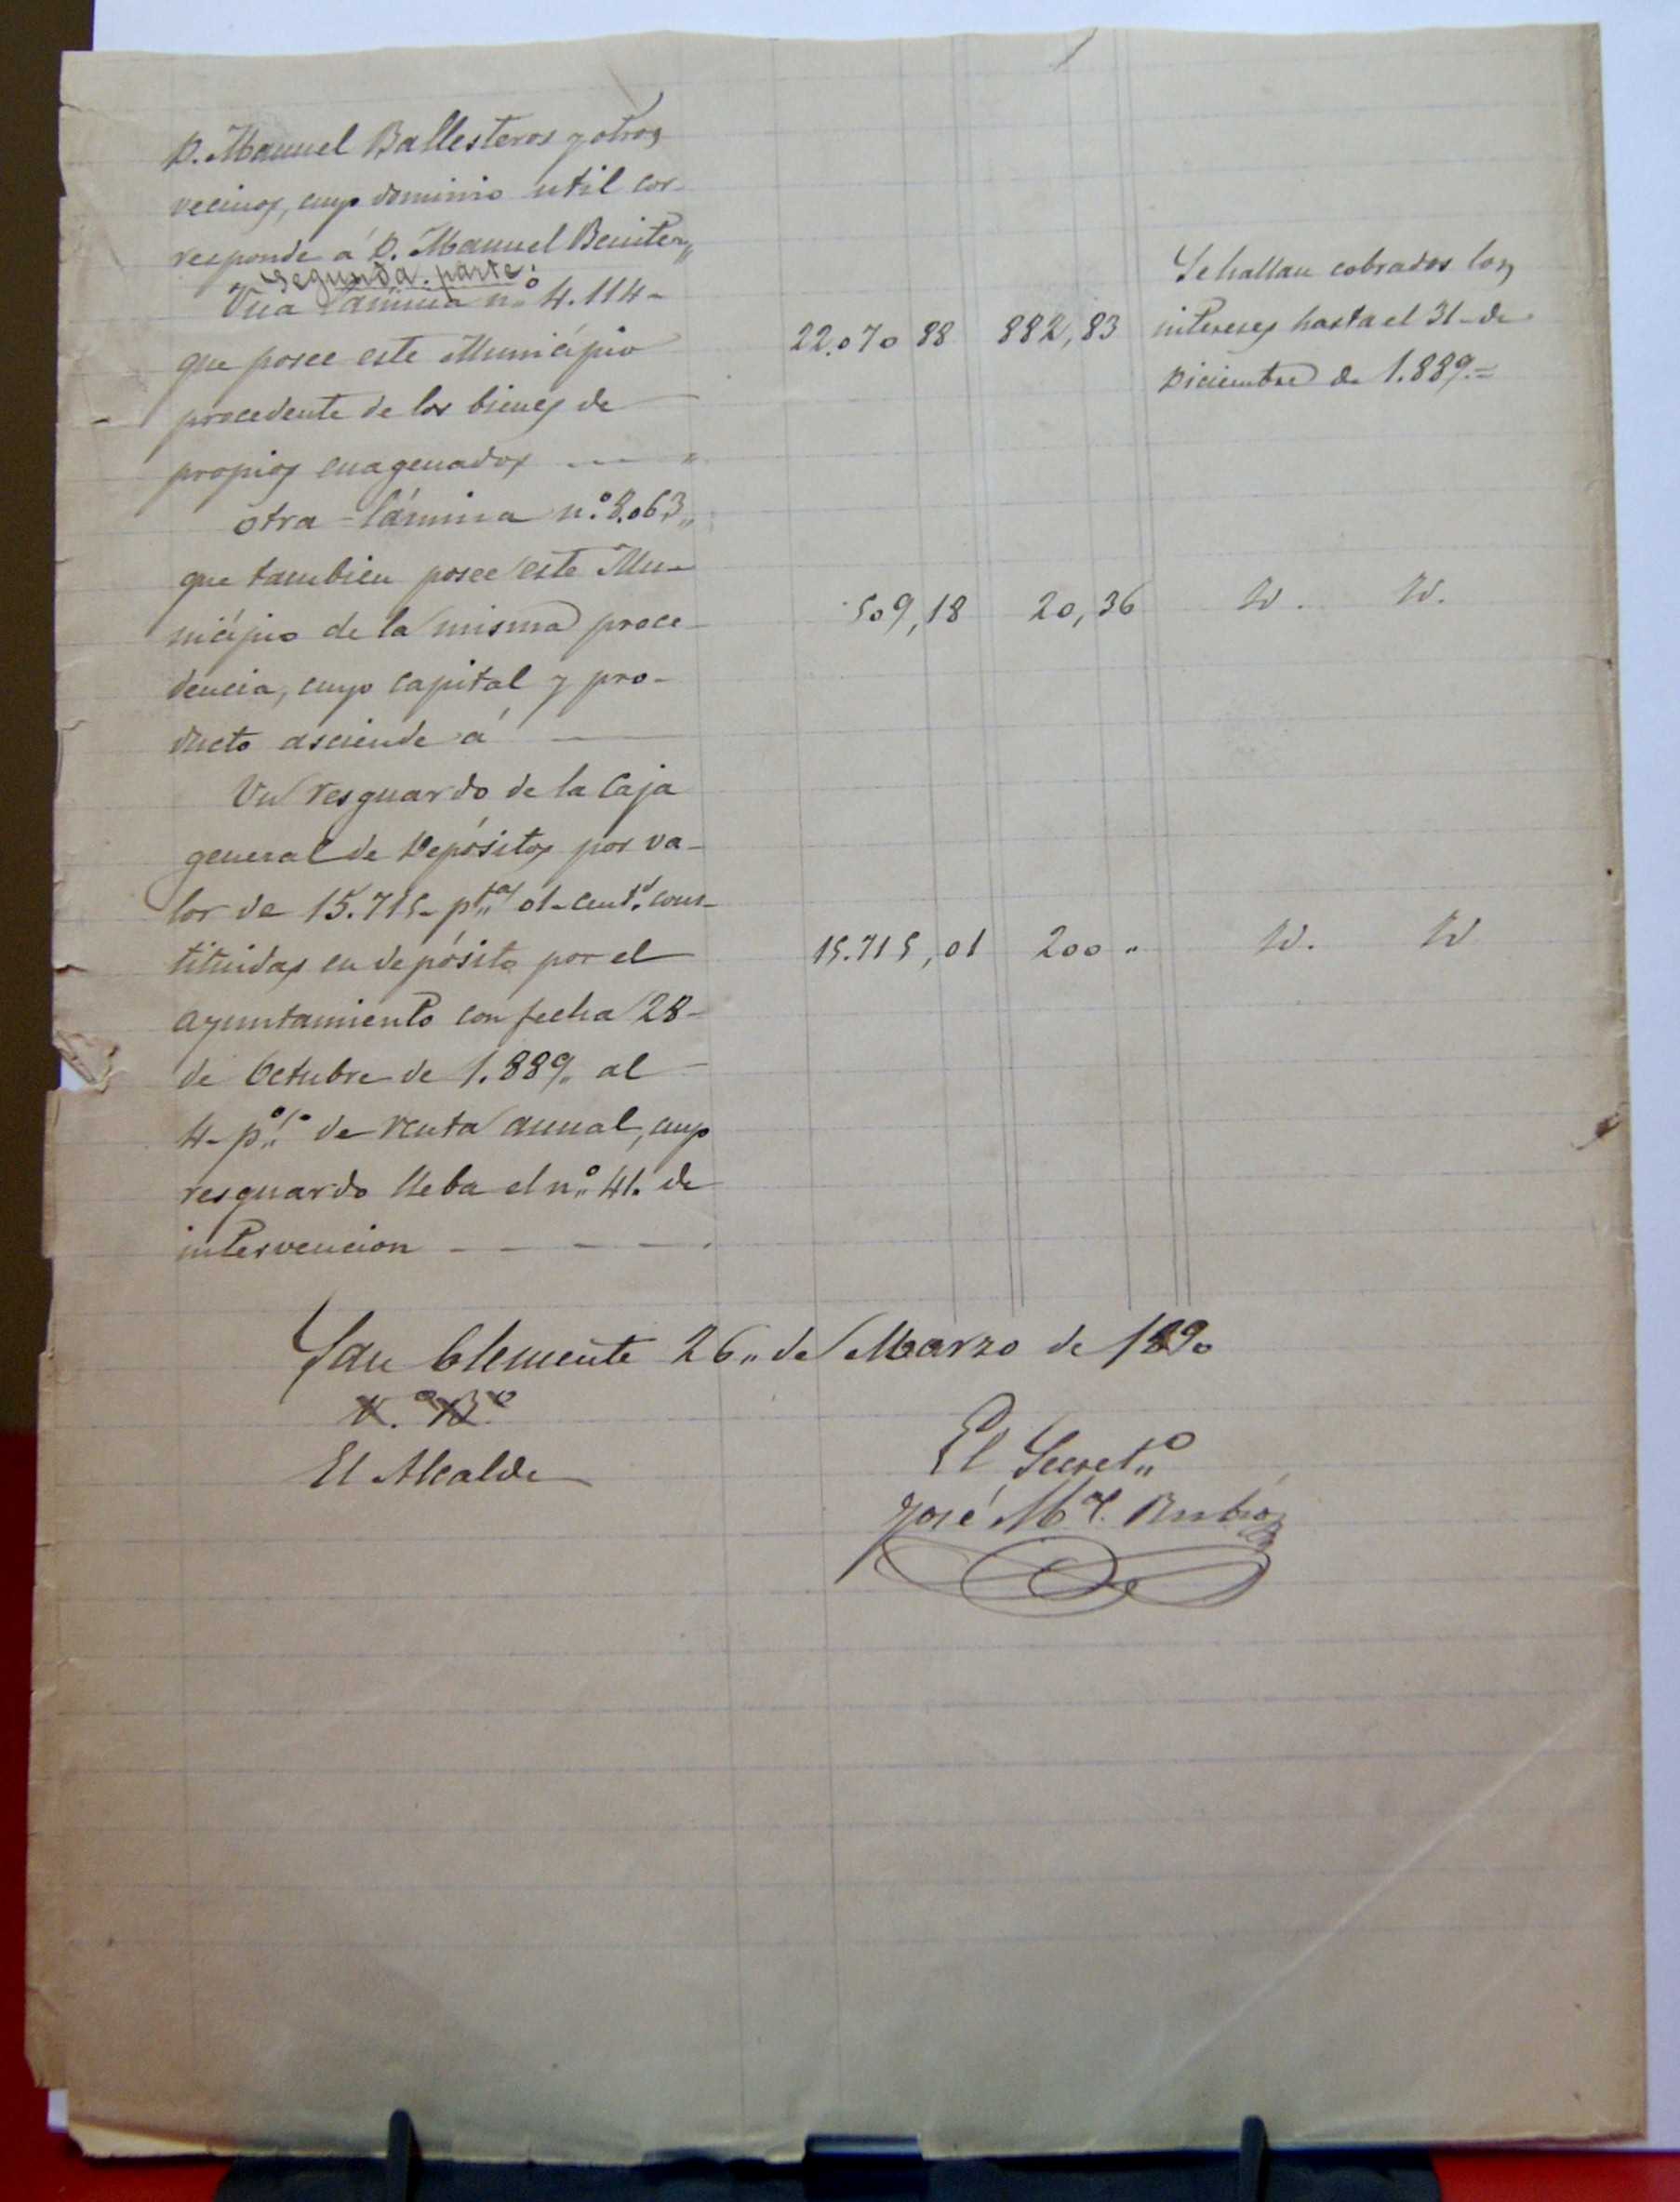 D. Manuel Ballesteros y otros
vecinos, cuyo dominio util cor-
responde á D. Manuel Benitez„
Segunda parte.
Una Lámina n.º 4.114-
que posee este Municipio
procedente de los bienes de
propios enagenados --- „
22.070 88 882,83
Se hallan cobrados los
intereses hasta el 31 de
Diciembre de 1.889.=
otra lámina n.º 8.063„
que tambien posee este Mu-
nicipio de la misma proce-
dencia, cuyo capital y pro-
ducto asciende á —
509,18 20,36 Id. Id.
Un resguardo de la Caja
general de Depósitos por va-
lor de 15.715- ptas 01- cents. cons-
tituidas en depósito por el
ayuntamiento con fecha 28-
de Octubre de 1.889„ al
4- p.% de renta anual, cuyo
resguardo lleba el n.º 41. de
intervencion - - - - -.
15.715,01 200 „ Id. Id
San Clemente 26„ de Marzo de 1890
V.º B.º
El Alcalde
El Secret.º
José M.ª Rubio